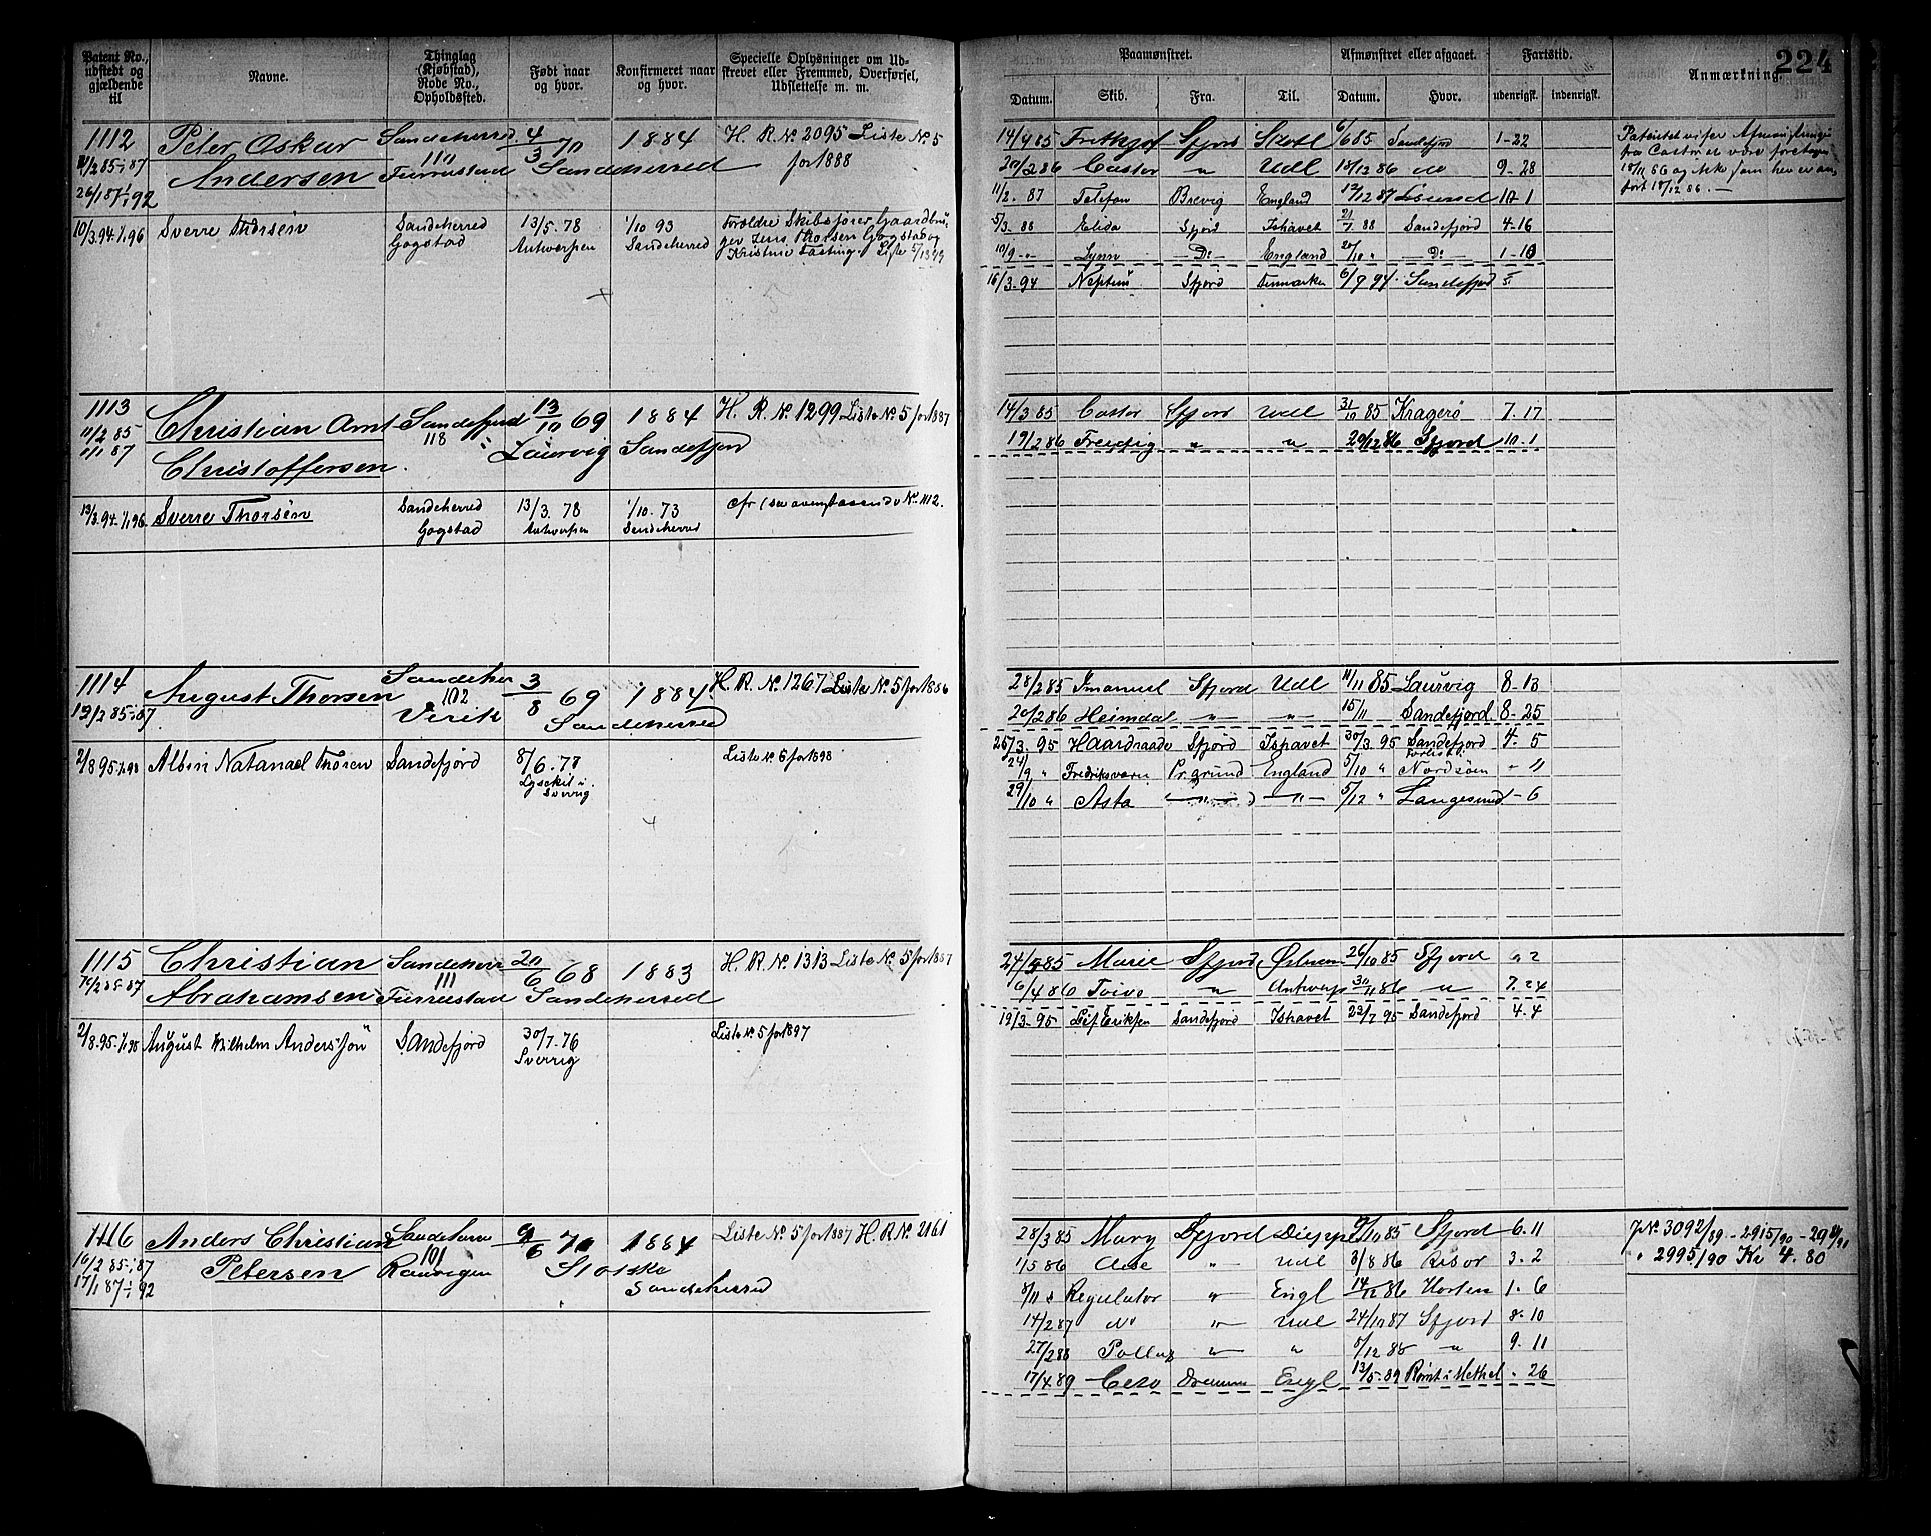 224
Patent No., udstedt og gjældende til
Navne.
Thinglag (Kjøbstad), Rode No., Opholdssted.
Født naar og hvor.
Konfirmeret naar og hvor.
Specielle Oplysninger om Udskrevet eller Fremmed, Overførsel, Udslettelse m. m.
Paamønstret.
Afmønstret eller afgaaet.
Fartstid.
Anmærkning.
Datum. Skib. Fra. Til. Datum. Hvor. udenrigsk. indenrigsk.
1112 Peter Oskar Sandeherred 4/3 70 1884 H. R. No 2095 Liste No 5
11/2 85 - 1/1 87 Andersen 110 Furrustad Sandeherred for 1888
26/1 87 - 1/1 92
14/4 85 Frithjof Sfjord Skotl 6/6 85 Sandefjord 1-22
20/2 86 Castor " Udl 18/12 86 do 9-28
11/2 87 Telefon Brevig England 12/12 87 10-1
5/3 88 Elida Sfjord Ishavet 21/7 88 Sandefjord 4-16
10/9 - Lynn - Do England 20/10 " - Do - 1-10
Patentet viser Afmønstringen
fra Castor at være foretagen
18/11 86 og ikke som her er an-
ført 18/12 86. —
10/3 94 1/1 96 Sverre Thorsøn Sandeherred 13/5 78 1/10 93 Forældre Skibsfører, Gaardbru-
Gogstad Antwerpen Sandeherred ger Jens Thorsen Gogstad og
Kristine Fasting Liste
16/3 94 Neptun Sfjord Danmark 6/9 94 Sandefjord 5
1113 Christian Amt Sandefjord 13/10 69 1884 H. R. No. 1299 Liste No 5 for 1887
11/2 85 118 Laurvig Sandefjord
1/1 87 Christoffersen.
14/3 85 Castor Sfjord Udl 31/10 85 Kragerø 7.17
19/2 86 Freidig " " 20/12 86 Sfjord 10.1
13/3 94 1/1 96 Sverre Thorsøn Sandeherred 13/3. 78 1/10. 73 cfr No. 1112.
Gogstad Antwerpen Sandeherred
1114 August Thorsen Sandeher 3/8 69 1884 H. R. No. 1267 Liste No. 5 for 1886
12/2 85 - 1/1 87 102 Virik Sandeherred
28/2 85 Imanuel Sfjord Udl 11/11 85 Laurvig 8-13
20/2 86 Heimdal " " 15/11 Sandefjord. 8-25
2/8 95 1/1 98 Albin Natanael Thoren Sandefjord 8/6. 77 Liste No 6 for 1898
Lysekil i
Sverrig
26/3. 95 Haardraade Sfjord Ishavet 30/3. 95 Sandefjord 4. 5
24/9 " Fredriksværn Pr.grund England 5/10 " Forlist Nordsøen - 11
29/10 " Asta " " 5/12 " Langesund - 6
1115 Christian Sandeherr 20/6 68 1883 H. R. No. 1313 Liste No 5 for 1887
Abrahamsen 111 Furrustad Sandeherred
24/3 85 Marie Sfjord 26/10 85 Sfjord " 2
6/4 86 Toivo " Antwerp 30/11 86 " 7.24
2/8 95. 1/1 98 August Wilhelm Anderssøn Sandefjord 30/7. 76 Liste No 5 for 1897
Sverrig
19/3. 95 Leif Eriksen Sandefjord Ishavet 23/7 95 Sandefjord 4. 4
1116 Anders Christian Sandeherre 9/6 70 1884 Liste No. 5 for 1887 H. R. No. 2161
16/2 85 - 1/1 87 Petersen 101 Ranvigen Slotske
17/1 87 - 1/1 92 Sandeherred
28/3 85 Mary Sfjord Dieppe 9/10 85 Sfjord 6.11
1/5 86 " Udl 3/8 86 Risør 3. 2
8/11 " Regulator " Engl 14/12 86 Horten 1. 6
14/2 87 do " Udl 24/10 87 Sfjord 8. 10
27/2 88 Pollux " " 8/12 88 " 9. 11
17/4 89 Cero Dramm Engl 13/5. 89 Rømt i Methel - 26
JNo. 3092/89 - 2915/90 -
" 2995/90 Kr 4. 80